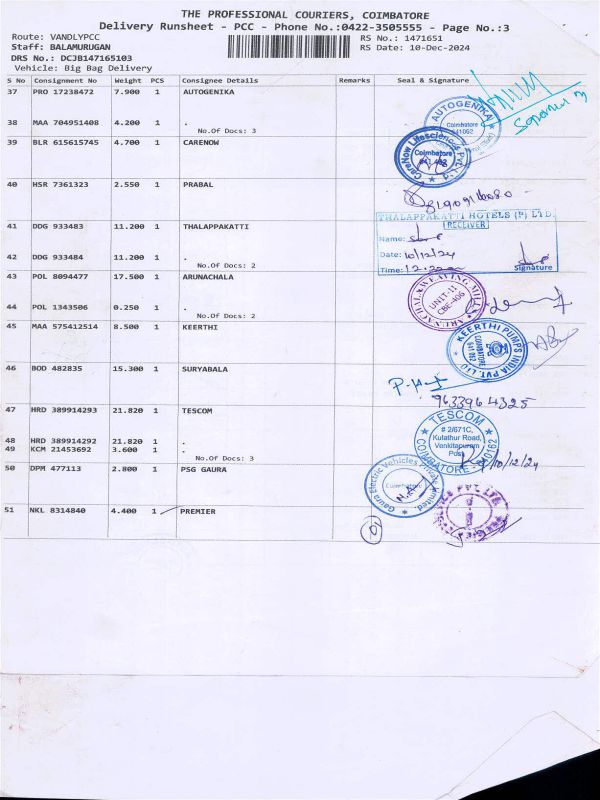 THE PROFESSIONAL COURIERS, COIMBATORE
Delivery Runsheet - PCC - Phone No.:0422-3505555 - Page No.:3
Route: VANDLYPCC
RS No.: 1471651
Staff: BALAMURUGAN
RS Date: 10-Dec-2024
DRS No.: DCJB147165103
Vehicle: Big Bag Delivery
S No Consignment No Weight PCS Consignee Details Remarks Seal & Signature
37 PRO 17238472 7.900 1 AUTOGENIKA
38 MAA 704951408 4.200 1 .
No.Of Docs: 3
AUTOGENIKA
Coimbatore
641062
39 BLR 615615745 4.700 1 CARENOW
CareNow Lifesciences Pvt. Ltd.
Coimbatore
40 HSR 7361323 2.550 1 PRABAL
41 DDG 933483 11.200 1 THALAPPAKATTI
THALAPPAKATTI HOTELS (P) LTD.
RECEIVER
Name:
Date: 10/12/24
Time:
Signature
42 DDG 933484 11.200 1 .
No.Of Docs: 2
43 POL 8094477 17.500 1 ARUNACHALA
ARUNACHALA WEAVING MILLS
UNIT-II
CBE-406
44 POL 1343506 0.250 1 .
No.Of Docs: 2
45 MAA 575412514 8.500 1 KEERTHI
KEERTHI PUMPS INDIA PVT. LTD
COIMBATORE
641 062
46 BOD 482835 15.300 1 SURYABALA
9633964325
47 HRD 389914293 21.820 1 TESCOM
TESCOM
# 2/671C,
Kulathur Road,
Venkitapuram
Post
COIMBATORE
10/12/24
48 HRD 389914292 21.820 1 .
49 KCM 21453692 3.600 1 .
No.Of Docs: 3
50 DPM 477113 2.800 1 PSG GAURA
Gaura Electric Vehicles Private Limited.
Coimbatore
51 NKL 8314840 4.400 1 PREMIER
PVT. LTD